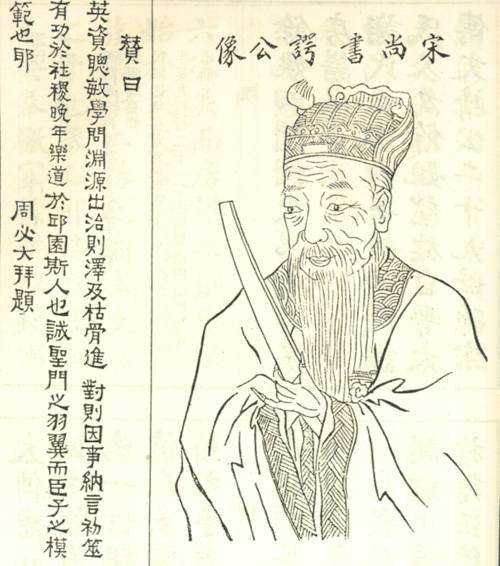 宋尚書諤公像
賛曰
英資聰敏學問淵源出治則澤及枯骨進對則因事納言初筮
有功於社稷晚年樂道於邱園斯人也誠聖門之羽翼而臣子之模
範也耶 周必大拜題